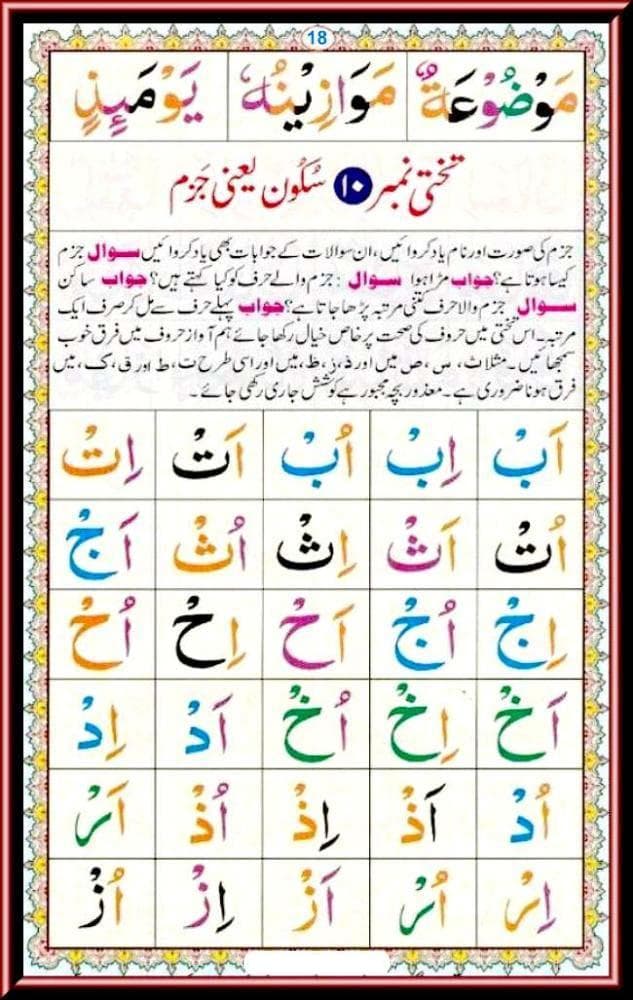 18
مَوْضُوْعَةٌ مَوَازِيْنُهٗ يَوْمَئِذٍ
تختی نمبر ١٠ سُکُون یعنی جَزم
جزم کی صورت اور نام یاد کروائیں، ان سوالات کے جوابات بھی یاد کروائیں سوال جزم
کیسا ہوتا ہے؟ جواب مڑا ہوا سوال : جزم والے حرف کو کیا کہتے ہیں؟ جواب ساکن
سوال جزم والا حرف کتنی مرتبہ پڑھا جاتا ہے؟ جواب پہلے حرف سے مل کر صرف ایک
مرتبہ۔ اس تختی میں حروف کی صحت پر خاص خیال رکھا جائے ہم آواز حروف میں فرق خوب
سمجھائیں۔ مثلا ث، س، ص میں اور ذ، ز، ظ، میں اور اسی طرح ت، ط اور ق، ک، میں
فرق ہونا ضروری ہے۔ معذور بچہ مجبور ہے کوشش جاری رکھی جائے۔
اَبْ اِبْ اُبْ اَتْ اِتْ
اُتْ اَثْ اِثْ اُثْ اَجْ
اِجْ اُجْ اَحْ اِحْ اُحْ
اَخْ اِخْ اُخْ اَدْ اِدْ
اُدْ اَذْ اِذْ اُذْ اَرْ
اِرْ اُرْ اَزْ اِزْ اُزْ